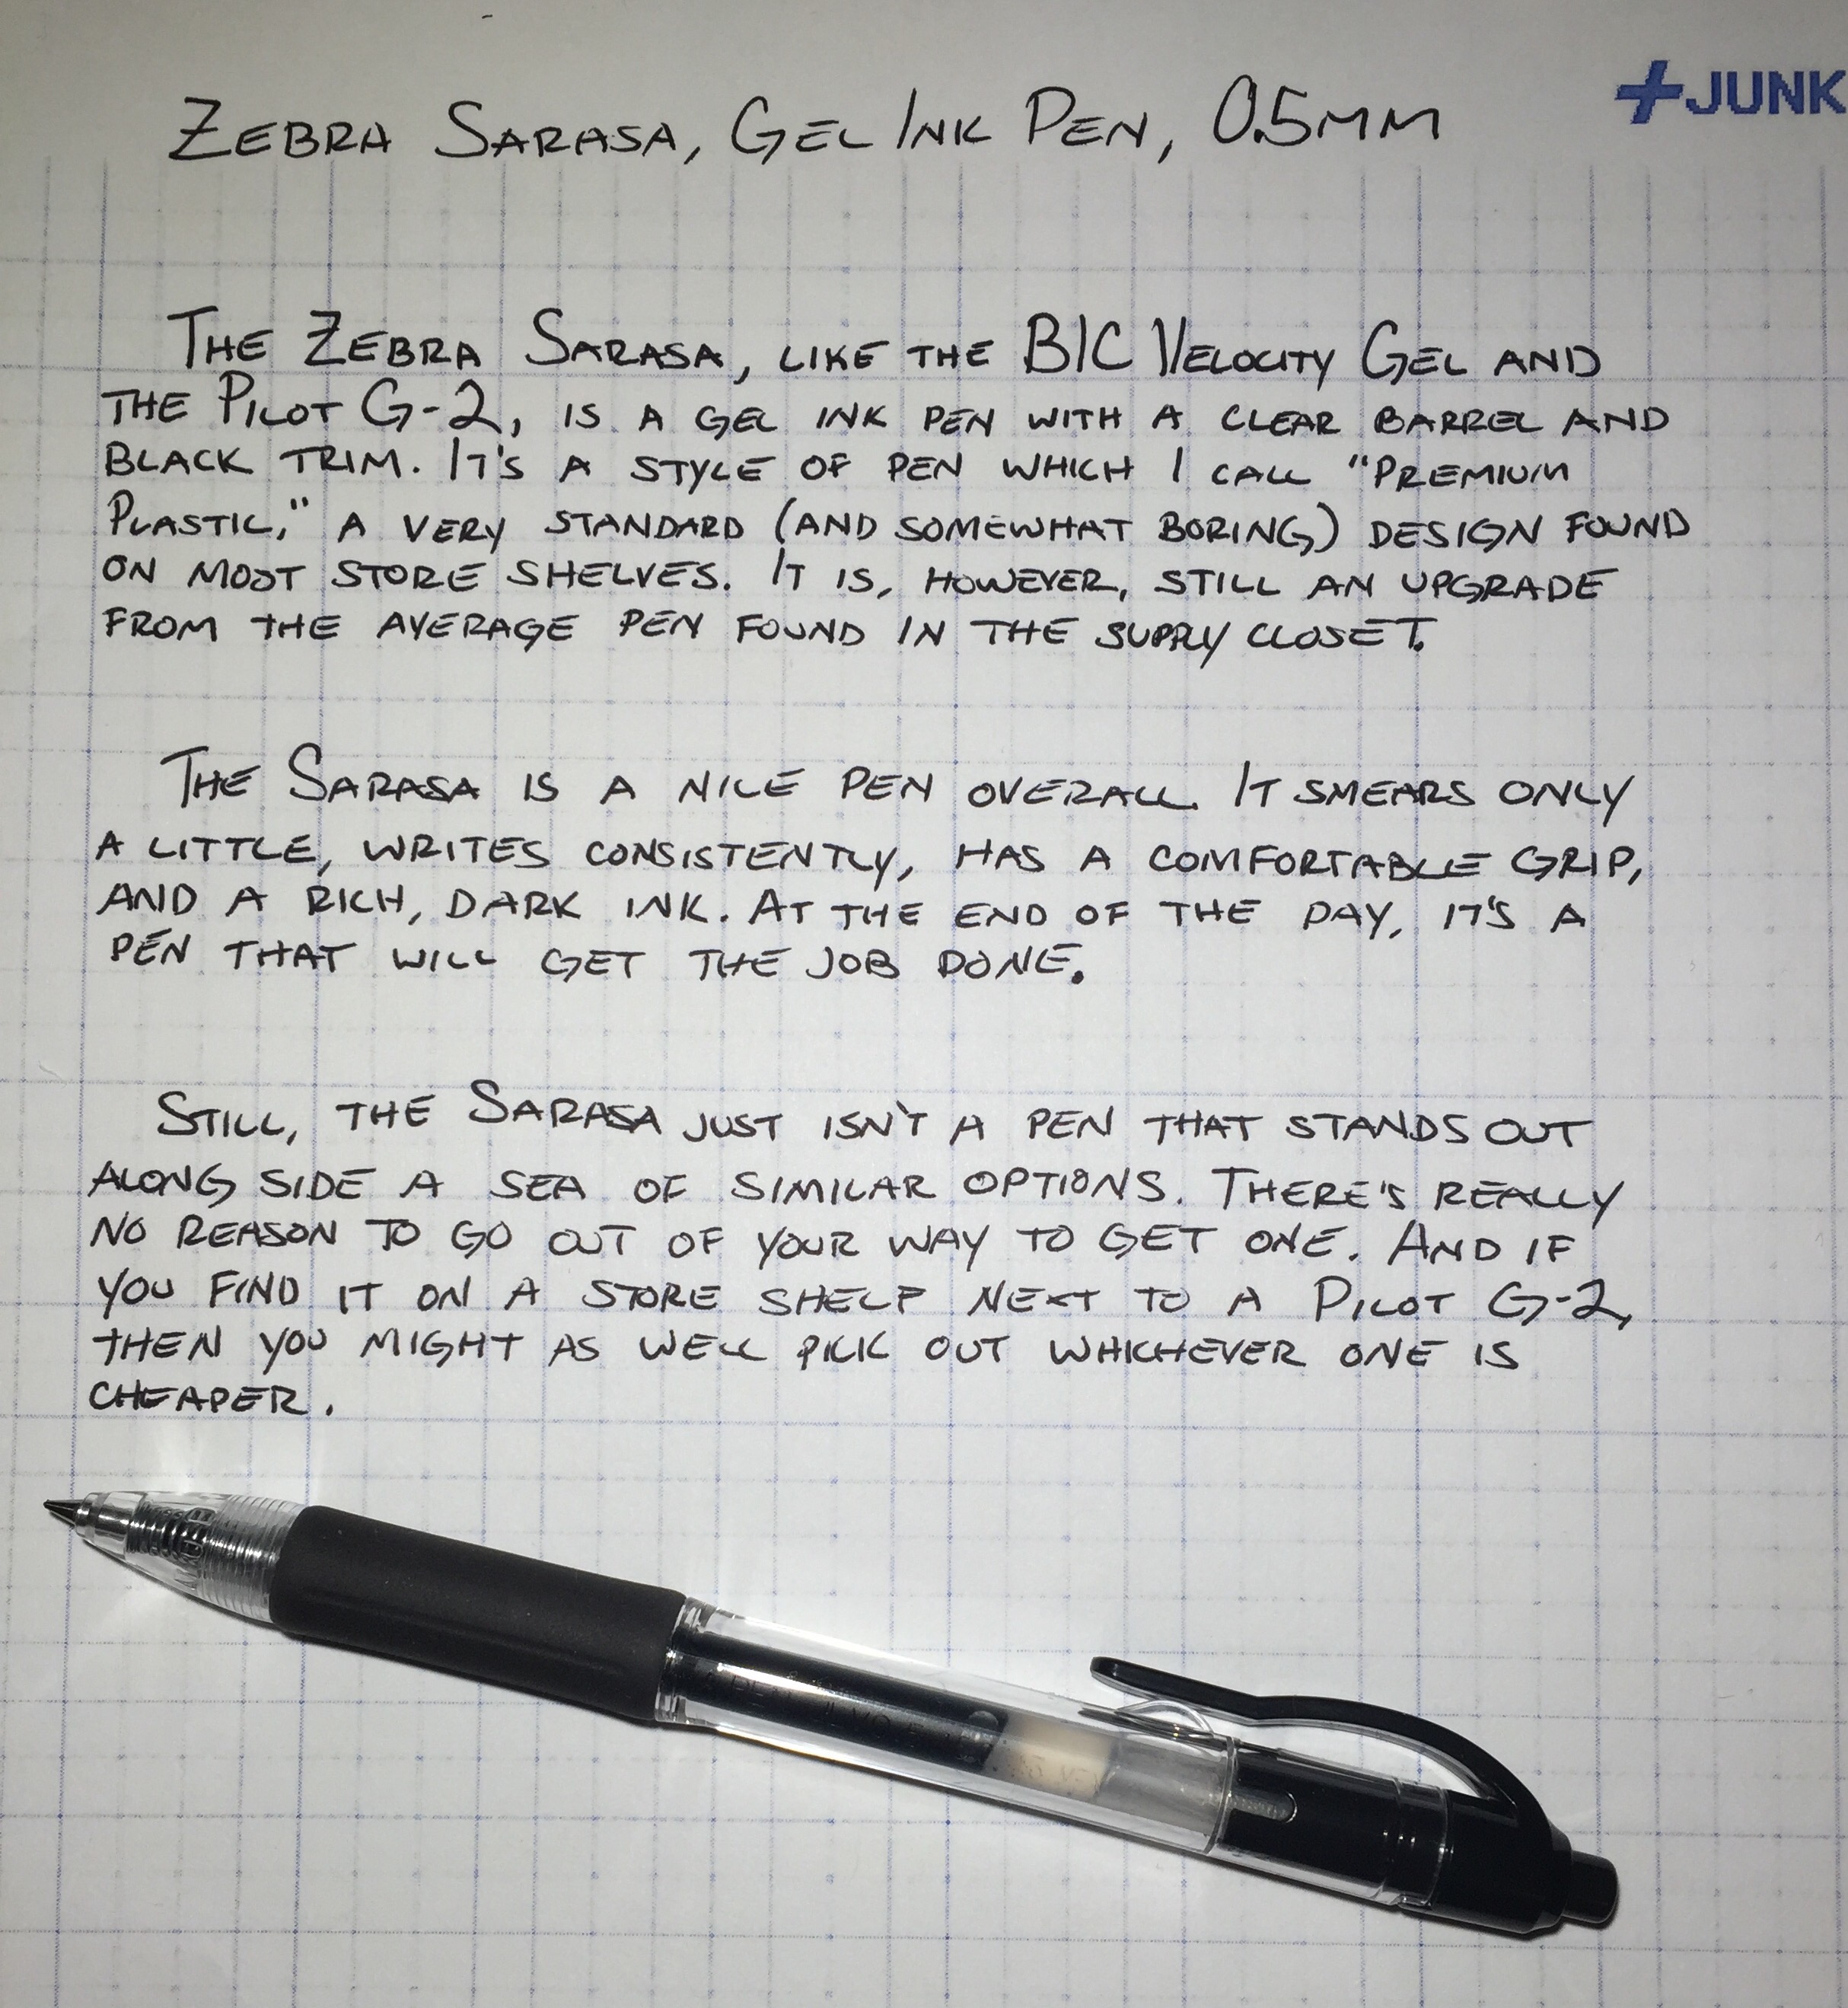 +JUNK
ZEBRA SARASA, GEL INK PEN, 0.5MM
THE ZEBRA SARASA, LIKE THE BIC VELOCITY GEL AND
THE PILOT G-2, IS A GEL INK PEN WITH A CLEAR BARREL AND
BLACK TRIM. IT'S A STYLE OF PEN WHICH I CALL "PREMIUM
PLASTIC," A VERY STANDARD (AND SOMEWHAT BORING) DESIGN FOUND
ON MOST STORE SHELVES. IT IS, HOWEVER, STILL AN UPGRADE
FROM THE AVERAGE PEN FOUND IN THE SUPPLY CLOSET.
THE SARASA IS A NICE PEN OVERALL. IT SMEARS ONLY
A LITTLE, WRITES CONSISTENTLY, HAS A COMFORTABLE GRIP,
AND A RICH, DARK INK. AT THE END OF THE DAY, IT'S A
PEN THAT WILL GET THE JOB DONE.
STILL, THE SARASA JUST ISN'T A PEN THAT STANDS OUT
ALONG SIDE A SEA OF SIMILAR OPTIONS. THERE'S REALLY
NO REASON TO GO OUT OF YOUR WAY TO GET ONE. AND IF
YOU FIND IT ON A STORE SHELF NEXT TO A PILOT G-2,
THEN YOU MIGHT AS WELL PICK OUT WHICHEVER ONE IS
CHEAPER.